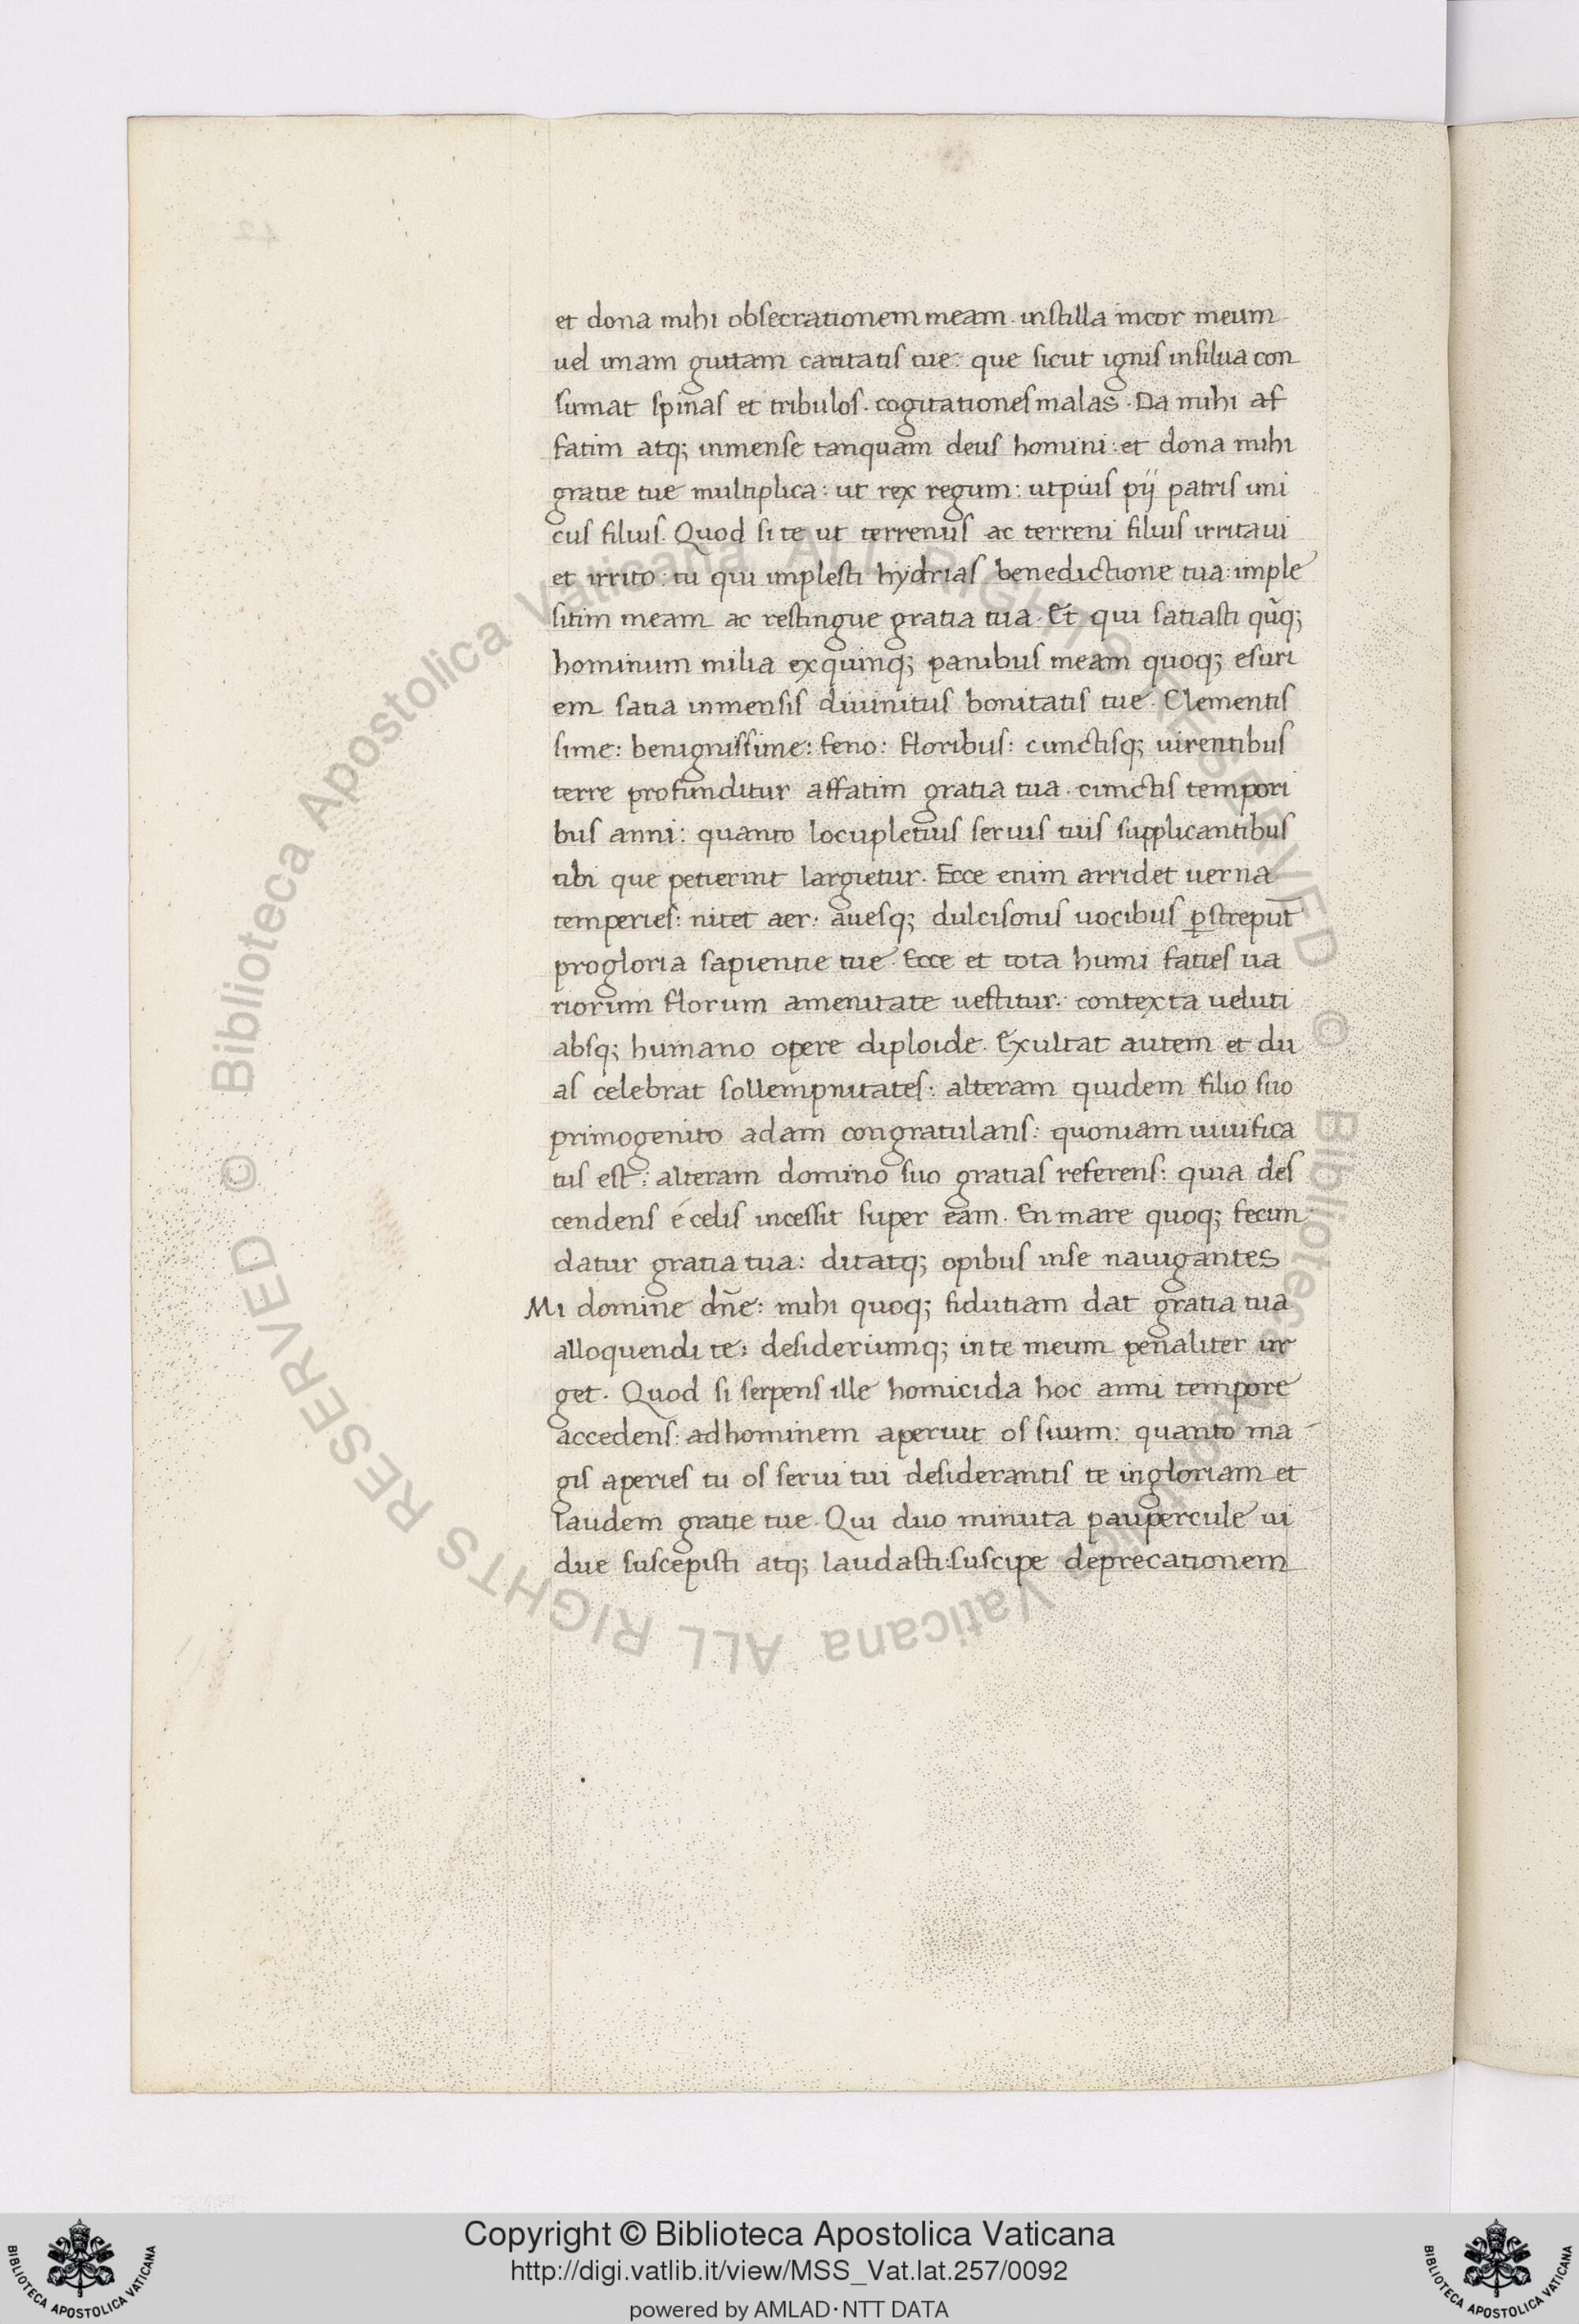 et dona mihi obsecrationem meam. instilla incor meum
uel unam guttam caritatis tue: que sicut ignis insilua con
sumat spinas et tribulos. cogitationes malas. Da mihi af
fatim atq; inmense tanquam deus homini: et dona mihi
gratie tue multiplica: ut rex regum: utpius pij patris uni
cus filius. Quod si te ut terrenus ac terreni filius irritaui
et irrito: tu qui implesti hydrias benedictione tua: imple
sitim meam ac restingue gratia tua. Et qui satiasti qu̅q;
hominum milia exquinq; panibus meam quoq; esuri
em satia inmensis diuinitus bonitatis tue. Clementis
sime: benignissime: feno: floribus: cunctisq; uirentibus
terre profunditur affatim gratia tua. cunctis tempori
bus anni: quanto locupletius seruis tuis supplicantibus
tibi que petierint largietur. Ecce enim arridet uerna
temperies: nitet aer: auesq; dulcisonis uocibus p̱strepu̅t
progloria sapientie tue. Ecce et tota humi faties ua
riorum florum amenitate uestitur. contexta ueluti
absq; humano opere diploide. Exultat autem et du
as celebrat sollempnitates: alteram quidem filio suo
primogenito adam congratulans: quoniam uiuifica
tus est: alteram domino suo gratias referens: quia des
cendens é celis incessit super eam. En mare quoq; fecun
datur gratia tua: ditatq; opibus inse nauigantes
Mi domine dn̅e: mihi quoq; fidutiam dat gratia tua
alloquendi te: desideriumq; inte meum penaliter ur
get. Quod si serpens ille homicida hoc anni tempore
accedens: adhominem aperuit os suum: quanto ma
gis aperies tu os serui tui desiderantis te ingloriam et
laudem gratie tue. Qui duo minuta paupercule ui
due suscepisti atq; laudasti: suscipe deprecationem
Biblioteca Apostolica Vaticana ALL RIGHTS RESERVED ©
Biblioteca Apostolica Vaticana ALL RIGHTS RESERVED ©
Copyright © Biblioteca Apostolica Vaticana
http://digi.vatlib.it/view/MSS_Vat.lat.257/0092
powered by AMLAD·NTT DATA
BIBLIOTECA APOSTOLICA VATICANA
BIBLIOTECA APOSTOLICA VATICANA